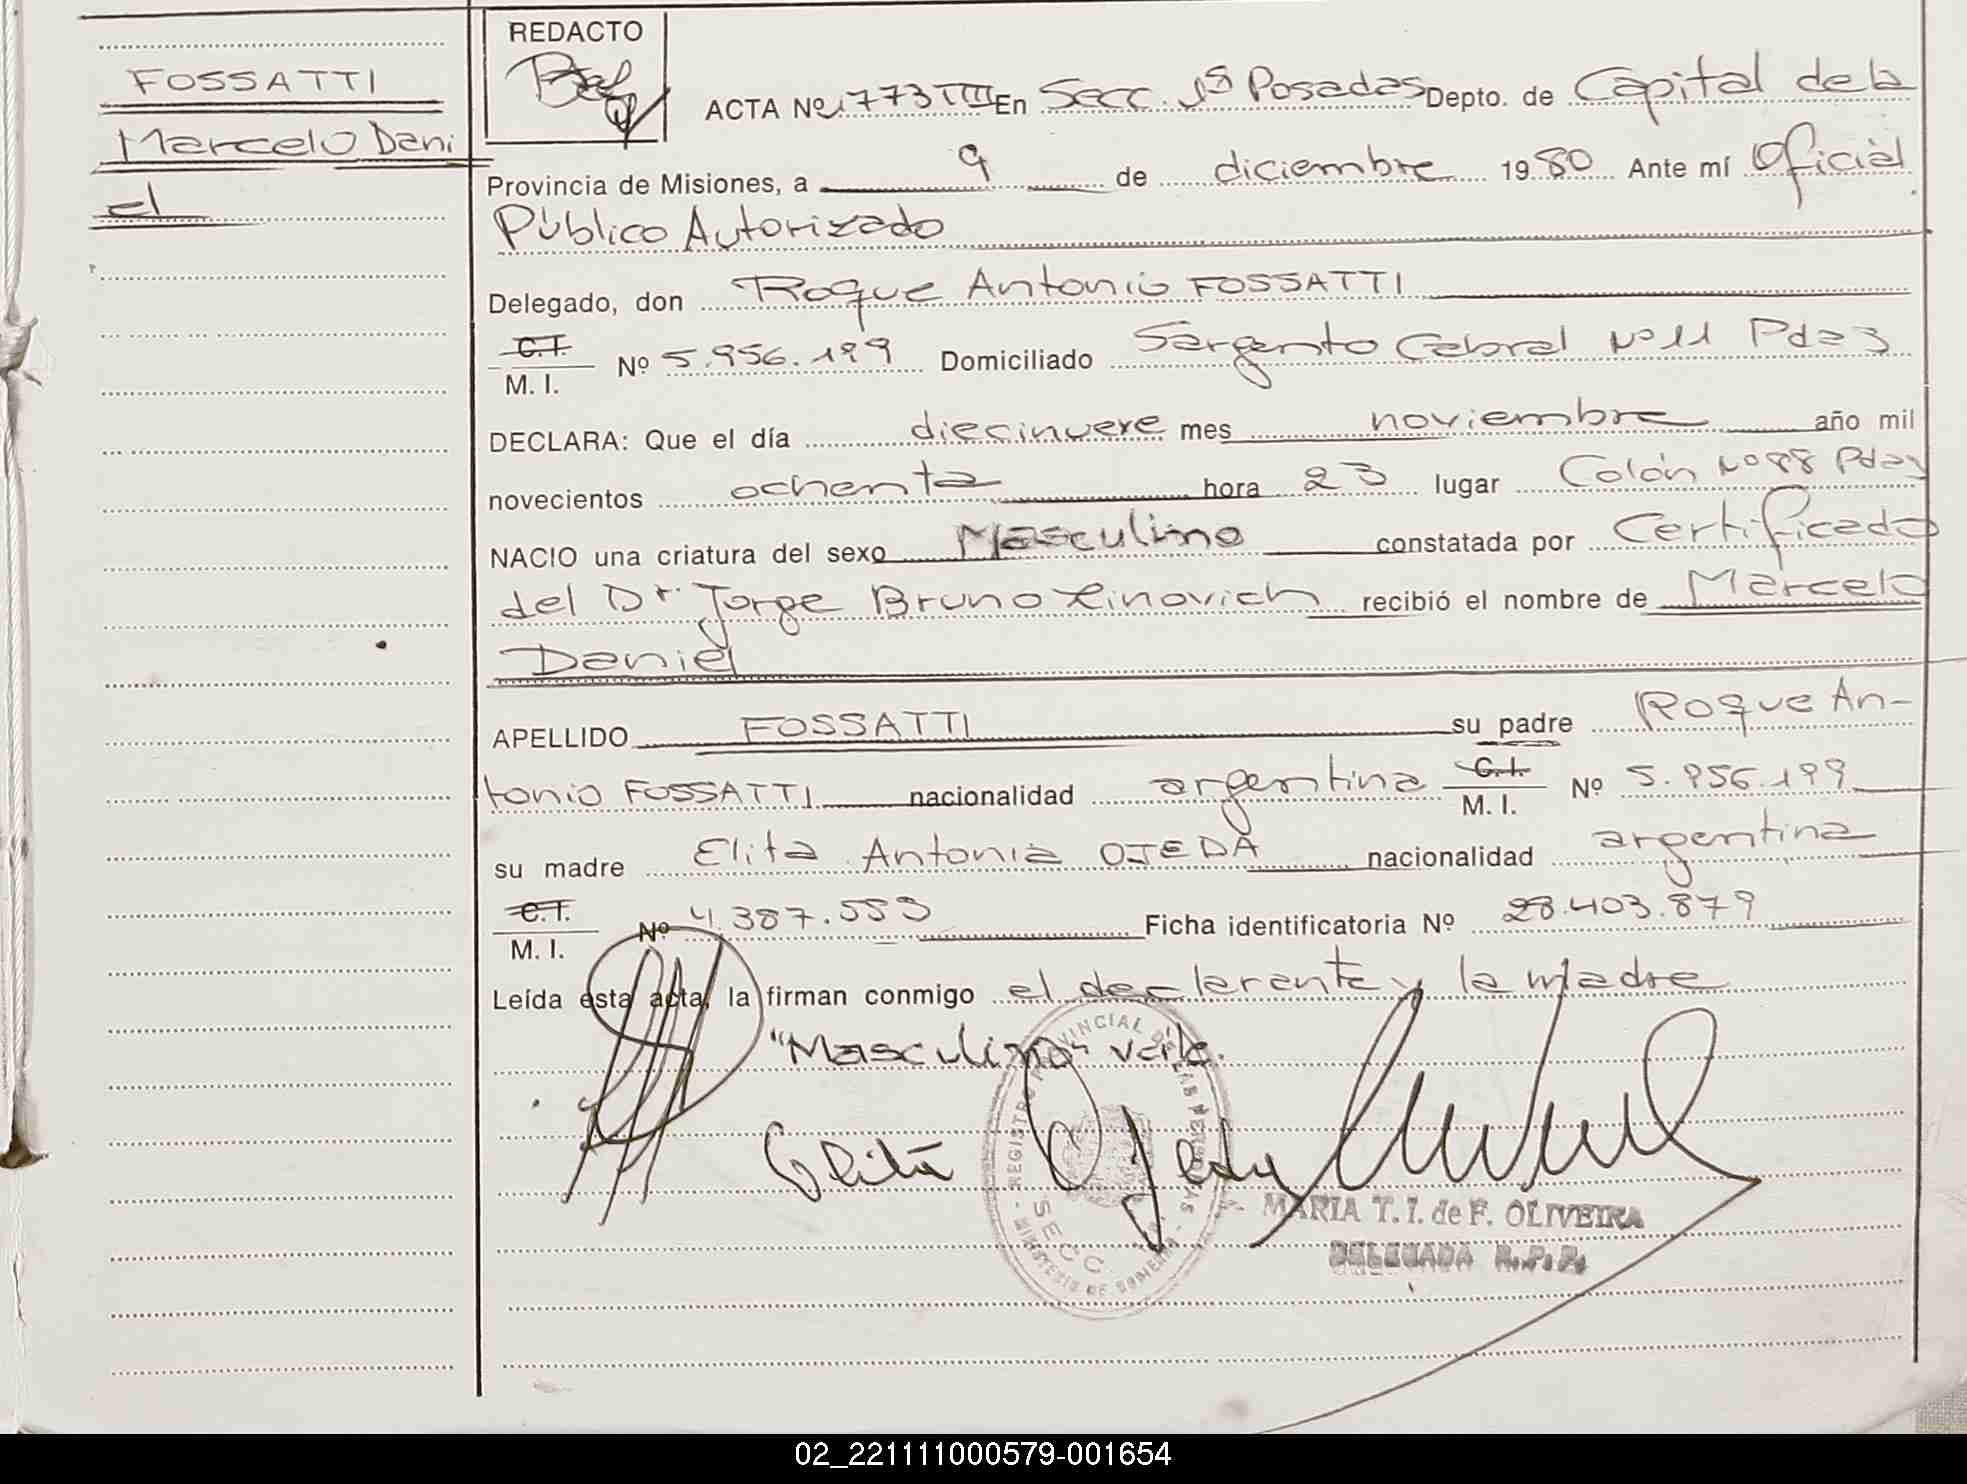 FOSSATTI
Marcelo Dani
el
REDACTO
ACTA Nº 1773 TIII En Secc. 1ª Posadas Depto. de Capital de la
Provincia de Misiones, a 9 de diciembre 1980 Ante mí Oficial
Público Autorizado
Delegado, don Roque Antonio FOSSATTI
C.I. M. I. Nº 5.956.199 Domiciliado Sargento Cabral Nº 11 Pdas
DECLARA: Que el día diecinueve mes noviembre año mil
novecientos ochenta hora 23 lugar Colón Nº 88 Pdas
NACIO una criatura del sexo Masculino constatada por Certificado
del Dr. Jorge Bruno Zinovich recibió el nombre de Marcelo
Daniel
APELLIDO FOSSATTI su padre Roque An-
tonio FOSSATTI nacionalidad argentina C.I. M. I. Nº 5.956.199
su madre Elita Antonia OJEDA nacionalidad argentina
C.I. M. I. Nº 4.387.553 Ficha identificatoria Nº 28.403.879
Leída ésta acta, la firman conmigo el declarante y la madre
"Masculino" vale.
Elita Ojeda
REGISTRO PROVINCIAL DE LAS PERSONAS
SECC
MINISTERIO DE GOBIERNO
MARIA T. I. de F. OLIVEIRA
DELEGADA R.P.P.
02_221111000579-001654